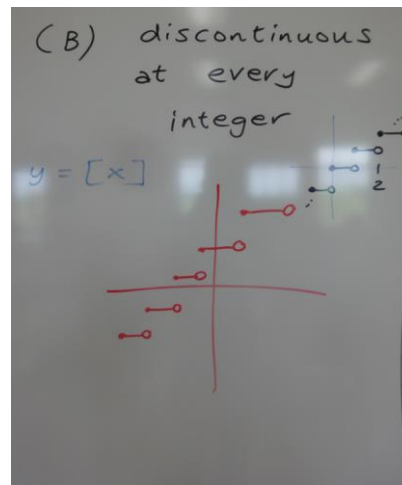 (B) discontinuous
at every
integer
y = [x]
1
2